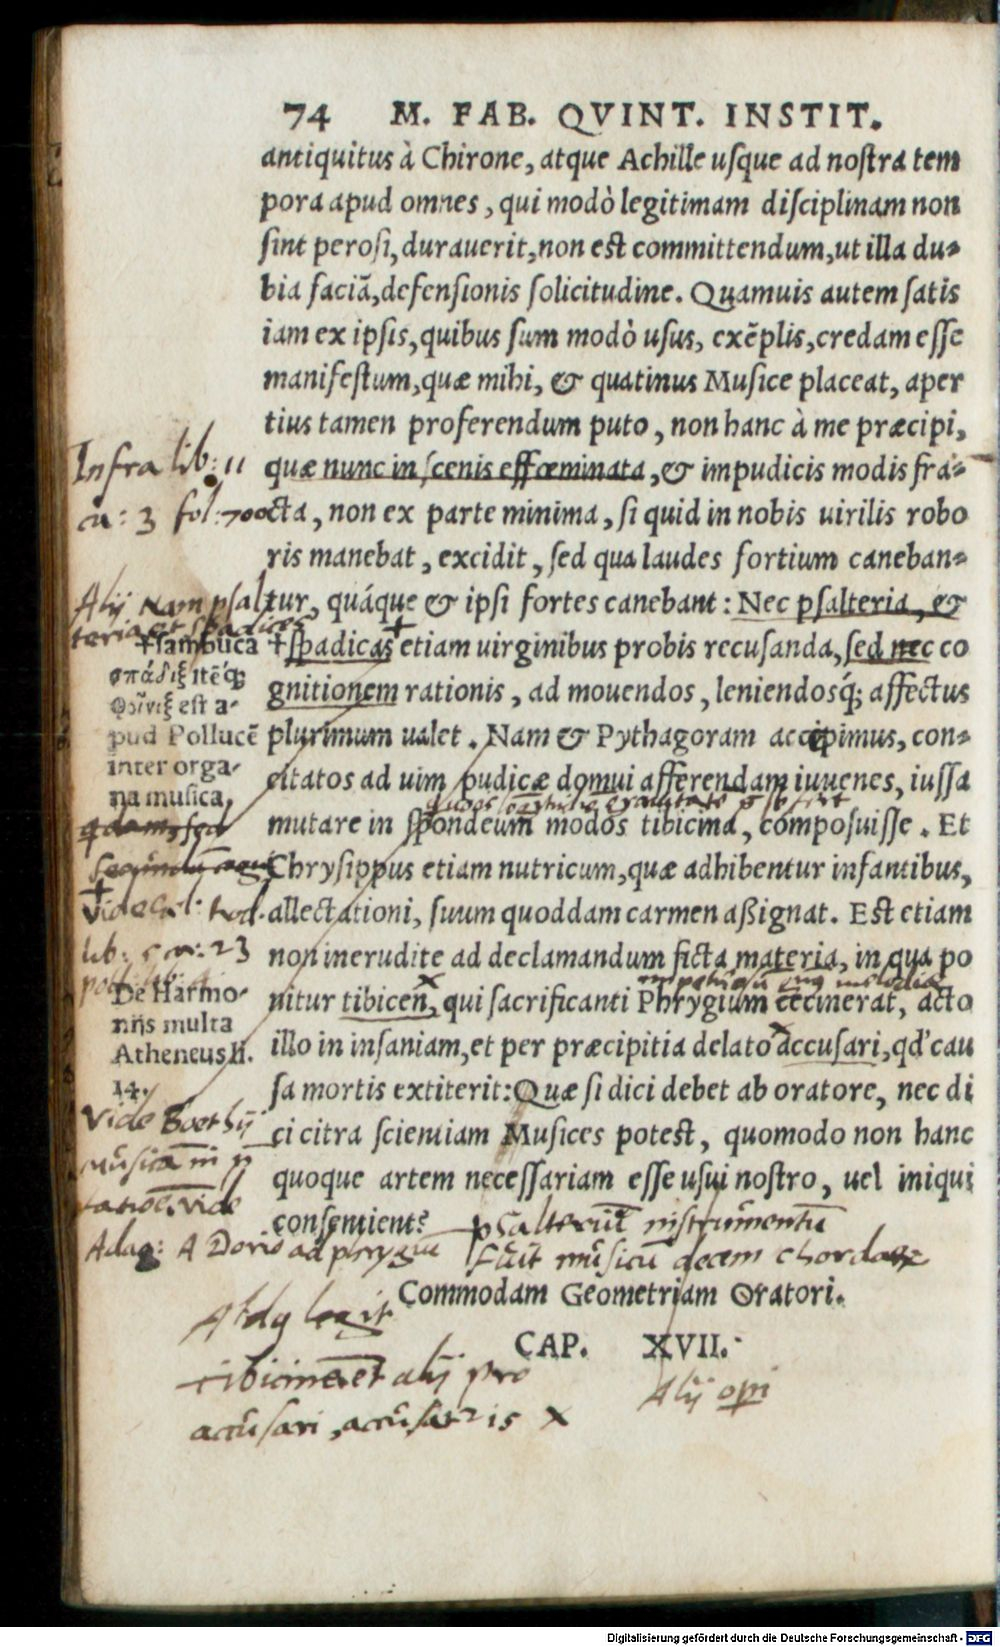 74 M. FAB. QVINT. INSTIT.
antiquitus à Chirone, atque Achille uſque ad noſtra tem
pora apud omnes, qui modò legitimam diſciplinam non
ſint peroſi, durauerit, non eſt committendum, ut illa du-
bia faciā, defenſionis ſolicitudine. Quamuis autem ſatis
iam ex ipſis, quibus ſum modò uſus, exẽplis, credam eſſe
manifeſtum, quæ mihi, & quatinus Muſice placeat, aper
tius tamen proferendum puto, non hanc à me præcipi,
quæ nunc in ſcenis effœminata, & impudicis modis fra-
cta, non ex parte minima, ſi quid in nobis uirilis robo
ris manebat, excidit, ſed qua laudes fortium caneban-
tur, quáque & ipſi fortes canebant: Nec pſalteria, &
†ſpadicas etiam uirginibus probis recuſanda, ſed nec co
gnitionem rationis, ad mouendos, leniendosq́; affectus
plurimum ualet. Nam & Pythagoram accepimus, con-
citatos ad uim pudicæ domui afferendam iuuenes, iuſſa
mutare in ſpondeum modos tibicina, compoſuiſſe. Et
Chryſippus etiam nutricum, quæ adhibentur infantibus,
allectationi, ſuum quoddam carmen aßignat. Eſt etiam
non inerudite ad declamandum ficta materia, in qua po
nitur tibicen, qui ſacrificanti Phrygium cecinerat, acto
illo in inſaniam, et per præcipitia delato accuſari, qd' cau
ſa mortis extiterit: Quæ ſi dici debet ab oratore, nec di
ci citra ſcientiam Muſices poteſt, quomodo non hanc
quoque artem neceſſariam eſſe uſui noſtro, uel iniqui
conſentient?
Commodam Geometriam Oratori.
CAP. XVII.
Infra lib: 11
ca: 3 fol: 700
Alij Nam pſal
teria et ſpadices
†ſambuca
σπάδιξ itẽq́;
Φοῖνιξ eſt a-
pud Pollucẽ
inter orga-
na muſica,
Vide Cæl: Rod.
lib: 5 ca: 23
De Harmo-
niis multa
Atheneus li.
14.
Vide Boethij
muſicam in
Vide
Adag: A Dorio ad phrygiū
pſalteriū inſtrumentū
fuit muſicū decem chordarū
Aldg legit
tibicinē et alij pro
accuſari, accuſatꝛ is x
Alij opi
Digitalisierung gefördert durch die Deutsche Forschungsgemeinschaft - DFG